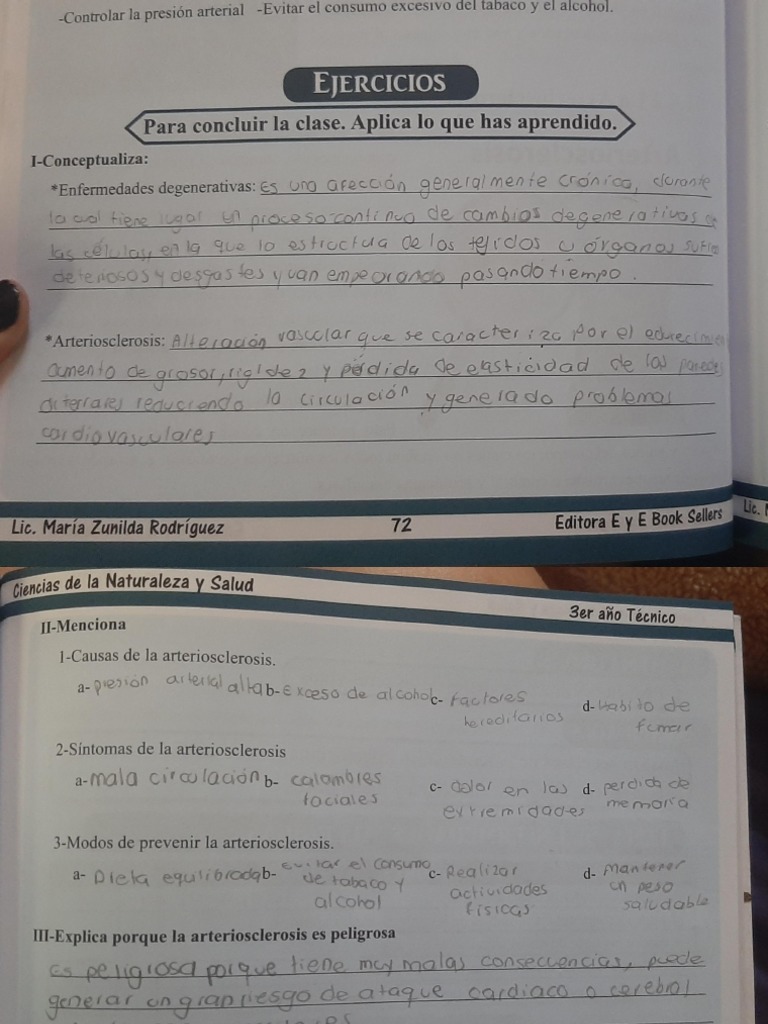 -Controlar la presión arterial -Evitar el consumo excesivo del tabaco y el alcohol.
EJERCICIOS
Para concluir la clase. Aplica lo que has aprendido.
I-Conceptualiza:
*Enfermedades degenerativas: Es una afección generalmente crónica, durante
la cual tiene lugar un proceso continuo de cambios degenerativos en
las células, en la que la estructua de los tejidos u órganos sufre
deteriosos y desgastes y van empeorando pasando tiempo.
*Arteriosclerosis: Alteración vascular que se caracteriza por el
aumento de grosor, rigidez y pérdida de elasticidad de las paredes
arterrales reduciendo la circulación y generado problemas
cardiovasculares
Lic. María Zunilda Rodríguez 72 Editora E y E Book Sellers
Lic.
Ciencias de la Naturaleza y Salud
3er año Técnico
II-Menciona
1-Causas de la arteriosclerosis.
a- presión arterial alta b- Exceso de alcohol c- factores hereditarios d- Habito de fumar
2-Síntomas de la arteriosclerosis
a- mala circulación b- calambres faciales c- dolor en las extremidades d- perdida de memoria
3-Modos de prevenir la arteriosclerosis.
a- Dieta equilibrada b- evitar el consumo de tabaco y alcohol c- Realizar actividades físicas d- Mantener un peso saludable
III-Explica porque la arteriosclerosis es peligrosa
es peligrosa porque tiene muy malas consecuencias, puede
generar un gran riesgo de ataque cardiaco o cerebral